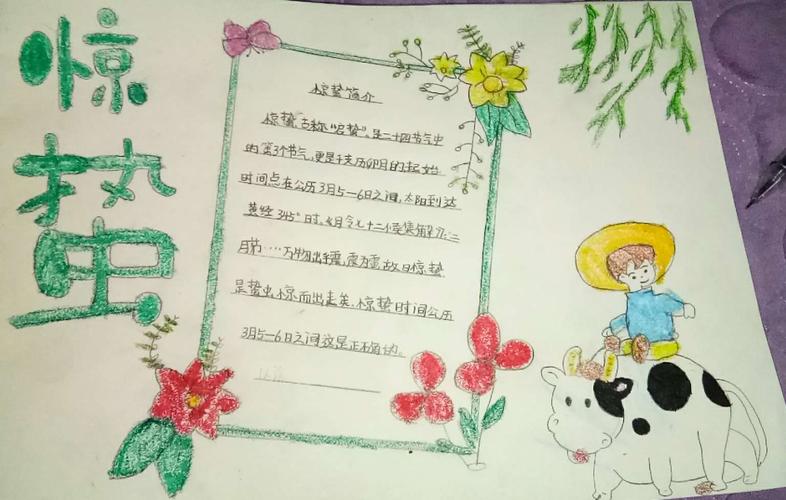 惊蛰
惊蛰简介
惊蛰,古称"启蛰",是二十四节气中
的第3个节气,更是干支历卯月的起始
时间点在公历3月5-6日之间,太阳到达
黄经345°时。《月令七十二候集解》:二
月节……万物出乎震,震为雷,故曰惊蛰
是蛰虫惊而出走矣。惊蛰时间公历
3月5-6日之间这是正确的。